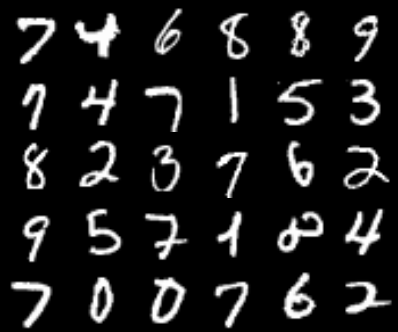 7 4 6 8 8 9
7 4 7 1 5 3
8 2 3 7 6 2
9 5 7 1 8 4
7 0 0 7 6 2